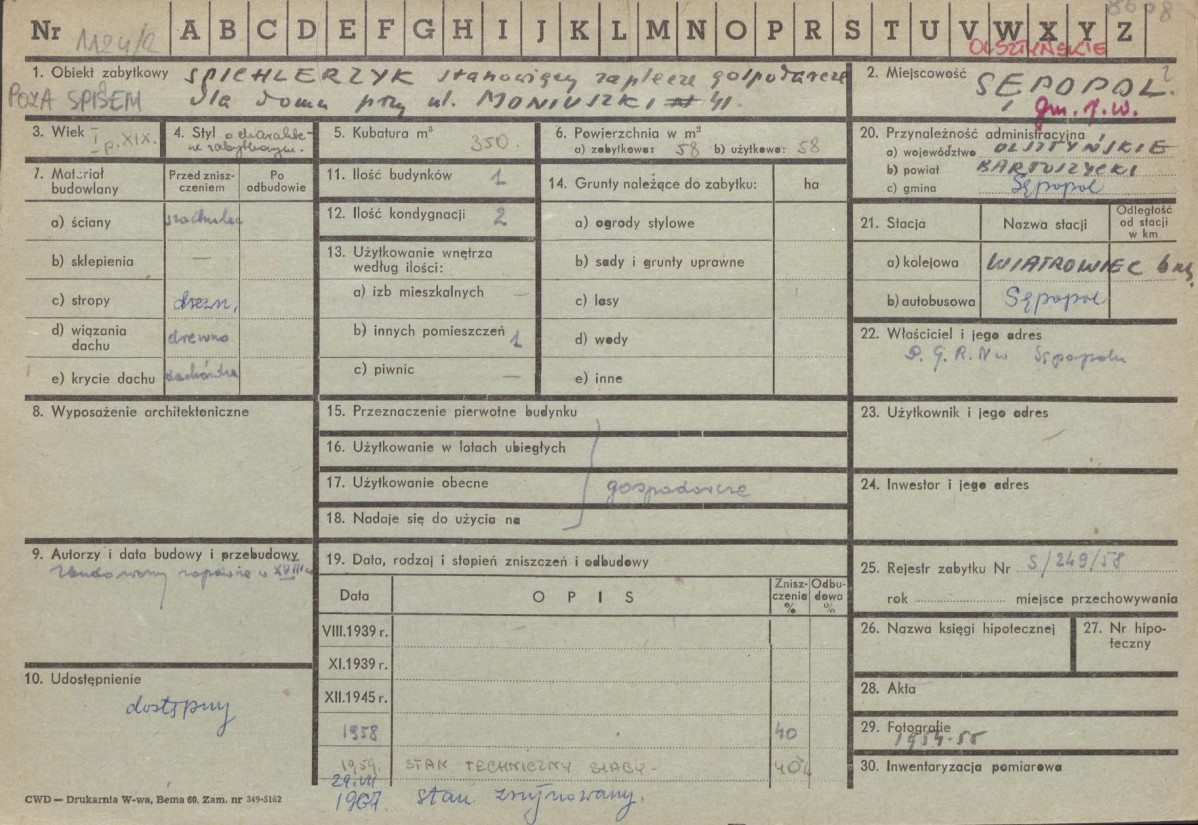 Nr 1124/2 A B C D E F G H I J K L M N O P R S T U V W X Y Z
OLSZTYŃSKIE
1. Obiekt zabytkowy SPICHLERZYK stanowiący zaplecze gospodarcze
POZA SPISEM dla domu przy ul. MONIUSZKI 41.
2. Miejscowość SĘPOPOL.
gm. j.w.
3. Wiek I p. XIX.
4. Styl o charakte-
rze zabytkowym.
5. Kubatura m³ 350.
6. Powierzchnia w m²
a) zabytkowa: 58 b) użytkowa: 58
7. Materiał budowlany
Przed znisz-czeniem
Po odbudowie
a) ściany szachulec
b) sklepienia —
c) stropy drewn.
d) wiązania dachu drewno
e) krycie dachu dachówka
8. Wyposażenie architektoniczne
9. Autorzy i data budowy i przebudowy
zbudowany zapewne w XVIII w
10. Udostępnienie
dostępny
11. Ilość budynków 1
12. Ilość kondygnacji 2
13. Użytkowanie wnętrza według ilości:
a) izb mieszkalnych —
b) innych pomieszczeń 1
c) piwnic —
14. Grunty należące do zabytku: ha
a) ogrody stylowe
b) sady i grunty uprawne
c) lasy
d) wody
e) inne
15. Przeznaczenie pierwotne budynku
16. Użytkowanie w latach ubiegłych
17. Użytkowanie obecne gospodarcze
18. Nadaje się do użycia na
19. Data, rodzaj i stopień zniszczeń i odbudowy
Data OPIS Znisz-czenia % Odbu-dowa %
VIII.1939 r.
XI.1939 r.
XII.1945 r.
1958 40
1959. STAN TECHNICZNY SŁABY- 40%
29.VII
1967. stan zrujnowany.
20. Przynależność administracyjna
a) województwo OLSZTYŃSKIE
b) powiat BARTOSZYCKI
c) gmina Sępopol
21. Stacja Nazwa stacji Odległość od stacji w km
a) kolejowa WIATROWIEC 6 km.
b) autobusowa Sępopol
22. Właściciel i jego adres
P. G. R. N w Sępopolu
23. Użytkownik i jego adres
24. Inwestor i jego adres
25. Rejestr zabytku Nr S/249/58
rok ........ miejsce przechowywania
26. Nazwa księgi hipotecznej
27. Nr hipo-teczny
28. Akta
29. Fotografie
1954-55
30. Inwentaryzacja pomiarowa
CWD — Drukarnia W-wa, Bema 60. Zam. nr 349-5162